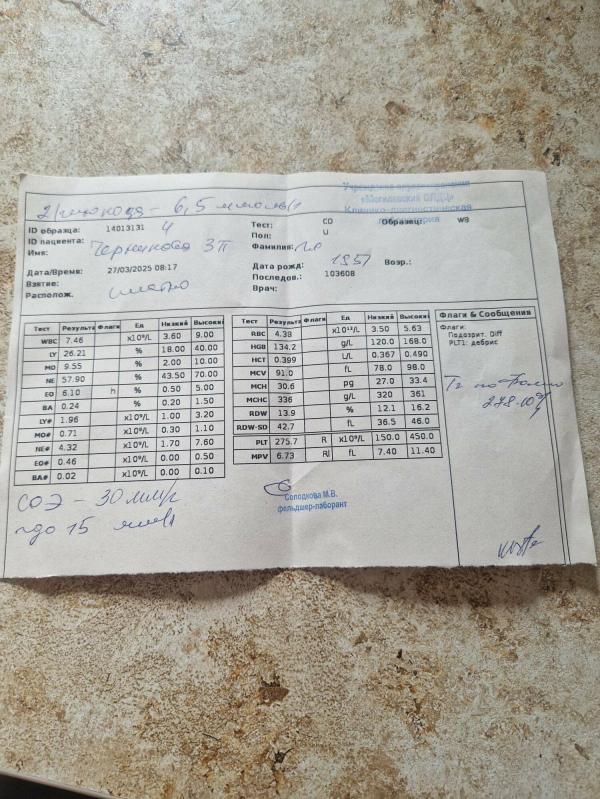 2/ глюкоза - 6,5 ммоль/л
Учреждение здравоохранения
«Могилевский ОЛДЦ»
Клинико-диагностическая
лаборатория
ID образца: 14013131 4 Тест: CD Образец: WB
ID пациента: Пол: U
Имя: ЗП Фамилия:
Дата/Время: 27/03/2025 08:17 Дата рожд: 1957 Возр.:
Взятие: Последов.: 103608
Располож. Врач:
Тест Результа Флаги Ед Низкий Высоки
WBC 7.46 x10⁹/L 3.60 9.00
LY 26.21 % 18.00 40.00
MO 9.55 % 2.00 10.00
NE 57.90 % 43.50 70.00
EO 6.10 h % 0.50 5.00
BA 0.24 % 0.20 1.50
LY# 1.96 x10⁹/L 1.00 3.20
MO# 0.71 x10⁹/L 0.30 1.10
NE# 4.32 x10⁹/L 1.70 7.60
EO# 0.46 x10⁹/L 0.00 0.50
BA# 0.02 x10⁹/L 0.00 0.10
Тест Результа Флаги Ед Низкий Высоки
RBC 4.38 x10¹²/L 3.50 5.63
HGB 134.2 g/L 120.0 168.0
HCT 0.399 L/L 0.367 0.490
MCV 91.0 fL 78.0 98.0
MCH 30.6 pg 27.0 33.4
MCHC 336 g/L 320 361
RDW 13.9 % 12.1 16.2
RDW-SD 42.7 fL 36.5 46.0
PLT 275.7 R x10⁹/L 150.0 450.0
MPV 6.73 Rl fL 7.40 11.40
Флаги & Сообщения
Флаги:
Подозрит. Diff
PLT1: дебрис
Тр по Фонио
278·10⁹/л
СОЭ - 30 мм/ч
до 15 мм/ч
Солодкова М.В.
фельдшер-лаборант